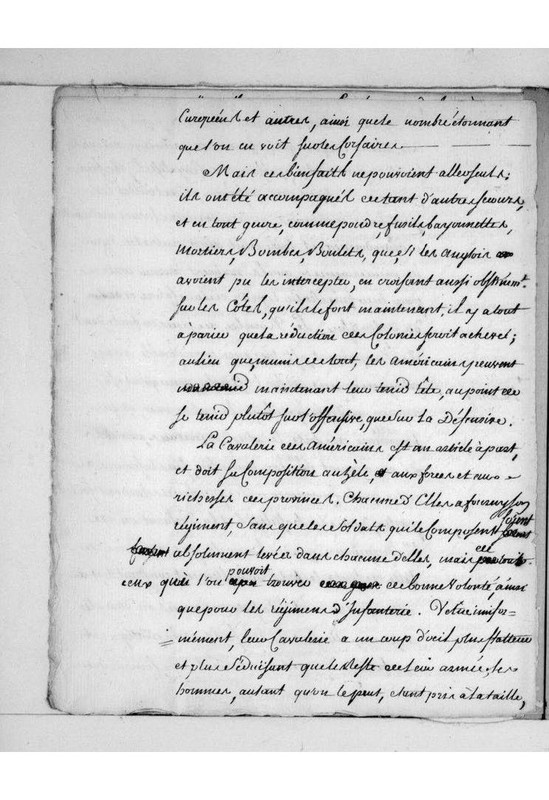 Européens et autres, ainsi que le nombre étonnant
que l'on en voit sur les Corsaires.
Mais ces bienfaits ne pouvoient aller seuls;
ils ont été accompagnés de tant d'autres secours,
et en tout genre, comme poudre fusils bayonnettes,
Mortiers, Bombes Boulets, que si les anglois
avoient pu les intercepter, en croisant aussi obstiném.t
sur les Côtes, qu'ils le font maintenant, il y a tout
à parier que la réduction des Colonies seroit achevée;
au lieu que, munis de tout, les américains peuvent
maintenant leur tenir tête, au point de
se tenir plutôt sur l'offensive, que sur la Défensive.
La Cavalerie des Américains est un article à part,
et doit sa Composition au zèle, aux forces et aux
richesses des provinces. Chacune d'Elles a fourni son
régiment, sans que les Soldats qui le Composent soient
absolument levés dans chacune d'elles, mais
ceux que l'on pouvoit trouver de bonne volonté ainsi
que pour les régimens d'Infanterie. Vetue unifor-
mément, leur Cavalerie a un coup d'oeil plus flatteur
et plus séduisant que le reste de leur armée, les
hommes, autant qu'on le peut, étant pris à la taille,